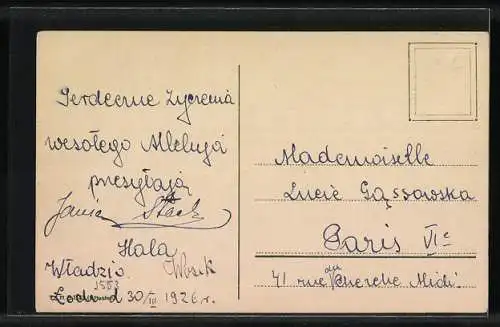 Serdeczne życzenia
wesołego Alleluja
przesyłają
Janie Stach
Hala
Władzio Włosik
1563
Łódź d 30/III 1926 r.
Mademoiselle
Lucie Gąssowska
Paris VIe
41 rue du Cherche Midi